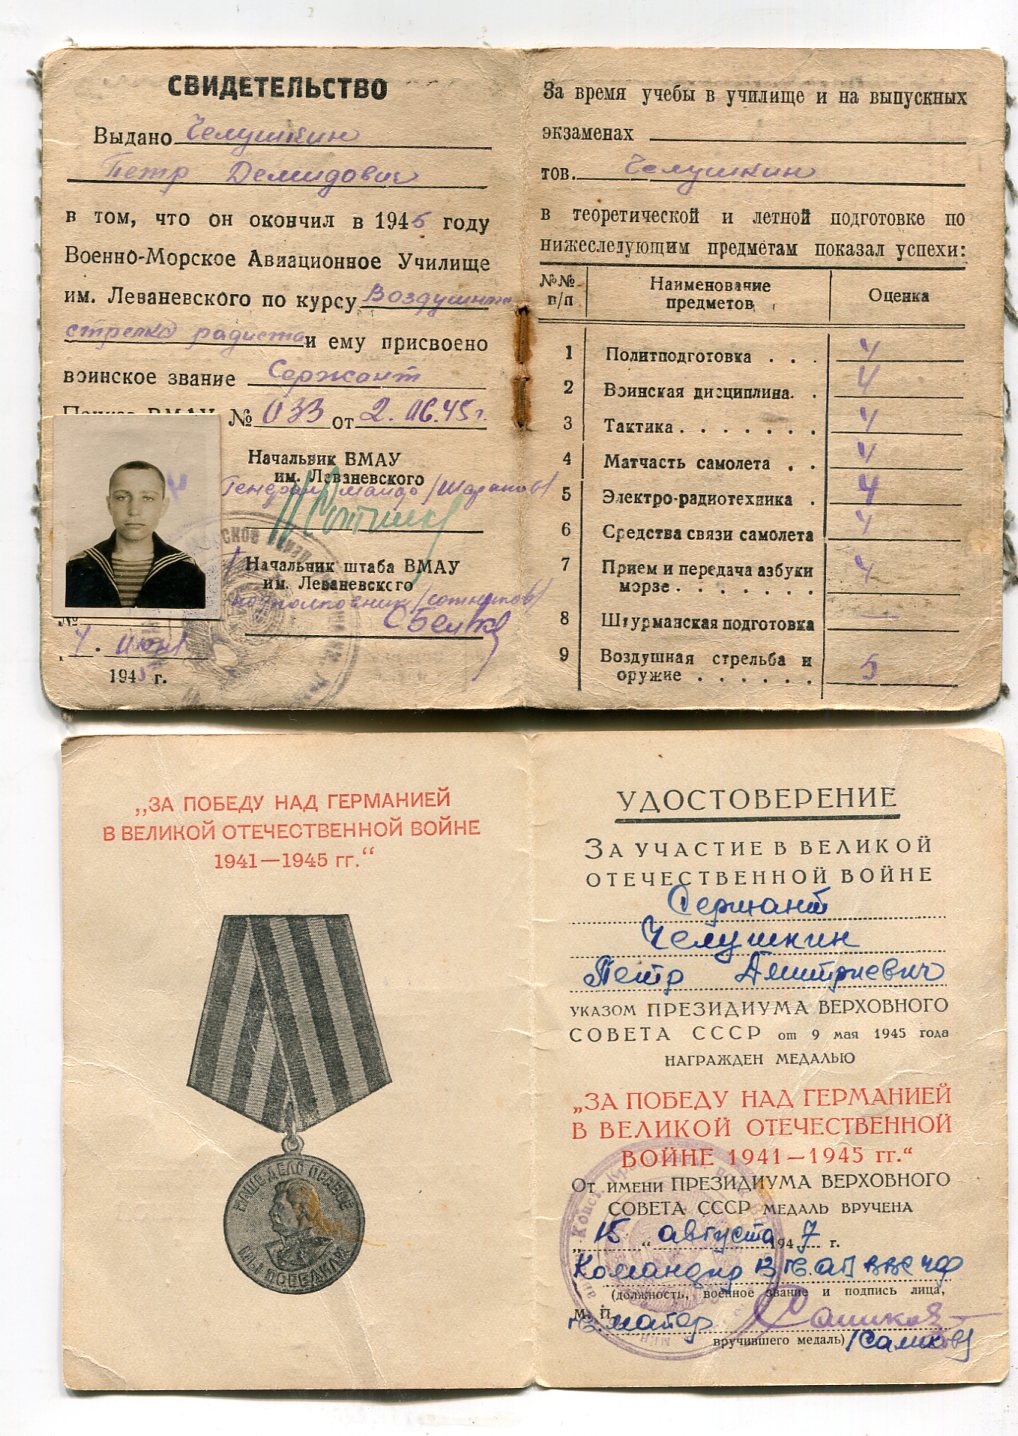 СВИДЕТЕЛЬСТВО
Выдано Челушкин
Петр Демидович
в том, что он окончил в 1945 году
Военно-Морское Авиационное Училище
им. Леваневского по курсу Воздушного
стрелка радиста и ему присвоено
воинское звание Сержант
Приказ ВМАУ № 033 от 2.06.45г.
Начальник ВМАУ
им. Леваневского
Генерал майор /Шарапов/
Начальник штаба ВМАУ
им. Леваневского
подполковник /Сотников/
№
7. июня
1945 г.
За время учебы в училище и на выпускных
экзаменах
тов. Челушкин
в теоретической и летной подготовке по
нижеследующим предметам показал успехи:
№№ п/п Наименование предметов Оценка
1 Политподготовка . . . 4
2 Воинская дисциплина. . 4
3 Тактика . . . . . . . 4
4 Матчасть самолета . . 4
5 Электро-радиотехника . 4
6 Средства связи самолета 4
7 Прием и передача азбуки
морзе . . . . . . . 4
8 Штурманская подготовка —
9 Воздушная стрельба и
оружие . . . . . . 5
„ЗА ПОБЕДУ НАД ГЕРМАНИЕЙ
В ВЕЛИКОЙ ОТЕЧЕСТВЕННОЙ ВОЙНЕ
1941—1945 гг.“
НАШЕ ДЕЛО ПРАВОЕ
МЫ ПОБЕДИЛИ
УДОСТОВЕРЕНИЕ
ЗА УЧАСТИЕ В ВЕЛИКОЙ
ОТЕЧЕСТВЕННОЙ ВОЙНЕ
Сержант
Челушкин
Петр Дмитриевич
УКАЗОМ ПРЕЗИДИУМА ВЕРХОВНОГО
СОВЕТА СССР от 9 мая 1945 года
НАГРАЖДЕН МЕДАЛЬЮ
„ЗА ПОБЕДУ НАД ГЕРМАНИЕЙ
В ВЕЛИКОЙ ОТЕЧЕСТВЕННОЙ
ВОЙНЕ 1941—1945 гг.“
ОТ ИМЕНИ ПРЕЗИДИУМА ВЕРХОВНОГО
СОВЕТА СССР МЕДАЛЬ ВРУЧЕНА
„15“ августа 1947 г.
Командир
(должность, военное звание и подпись лица,
М. П.
майор
вручившего медаль)